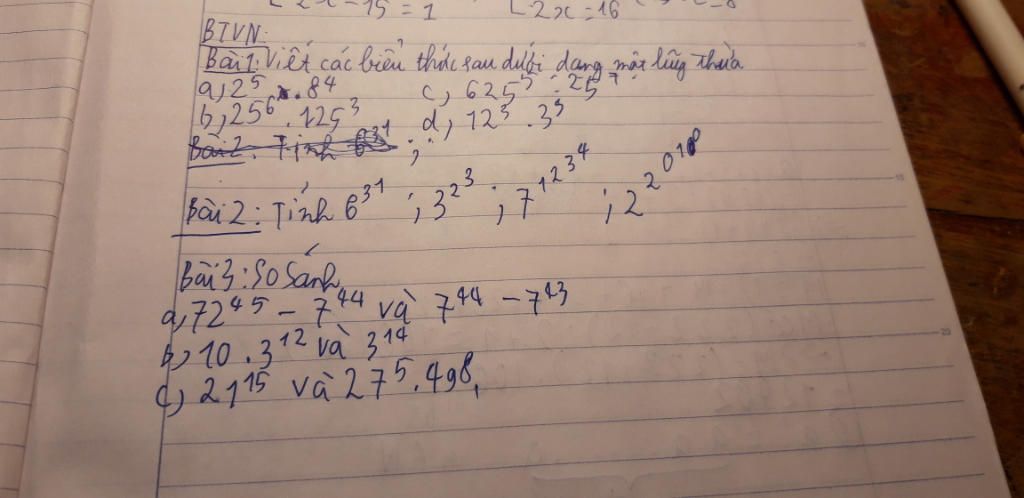 2x - 15 = 1 [2x = 16
BTVN:
Bài 1: Viết các biểu thức sau dưới dạng một lũy thừa
a, 2⁵ . 8⁴ c, 625⁵ : 25⁷
b, 25⁶ . 125³ d, 12³ . 3³
Bài 2: Tính 6³¹ ;
Bài 2: Tính 6^3^1 ; 3^2^3 ; 7^1^2^3^4 ; 2^2^0^1^8
Bài 3: So sánh
a, 72⁴⁵ - 7⁴⁴ và 7⁴⁴ - 7⁴³
b, 10 . 3¹² và 3¹⁴
c, 21¹⁵ và 27⁵ . 49⁸